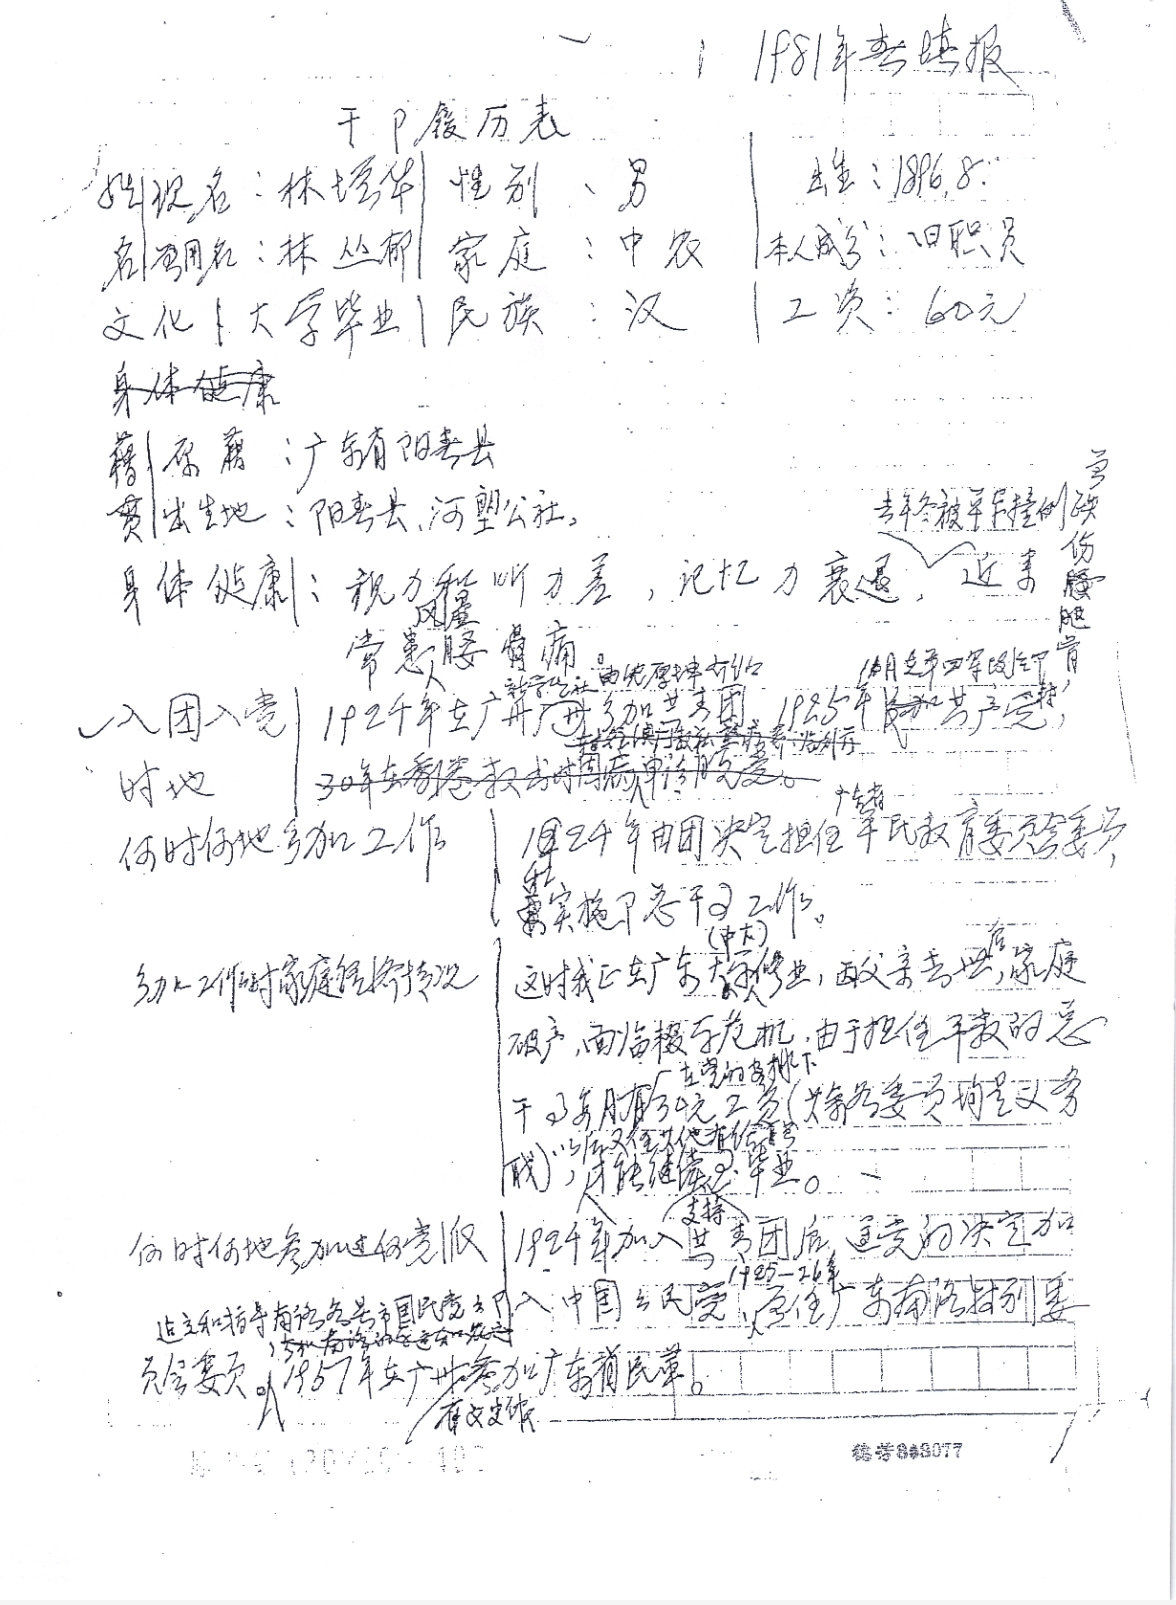 1981年春填报
干卩履历表
姓 现名：林培华 性别、男 出生：1896.8.
名 曾用名：林丛郁 家庭：中农 本人成分：旧职员
文化 大学毕业 民族：汉 工资：60元
身体健康
藉 原藉：广东省阳春县
贯 出生地：阳春县、河塱公社。
去年冬被单车撞倒
跌伤腰腿骨，
身体健康：视力和听力差，记忆力衰退，近来
风湿
常患腰骨痛
由 介绍
入团入党 1924年在广州 参加共青团 1925年 参加共产党，
时地 30年在香港
广东省
何时何地参加工作 1924年由团决定担任平民教育委员会委员，
实施卩总干事工作。
(中大)
参加工作时家庭经济情况 这时我正在广东大学修业，因父亲去世后，家庭
破产，面临辍学危机，由于担任平教的总
在党的安排下
干事每月有30元工资(其余各委员均是义务
以后又任其他有给
职)，才能继续 毕业。
支持
何时何地参加过何党派 1924年加入共青团后，遵党的决定加
1925—26年
入中国国民党，原任广东南路特别委
建立和指导南路各县市国民党
员会委员。1957年在广州参加广东省民革。
有文史馆
穗劳 3077